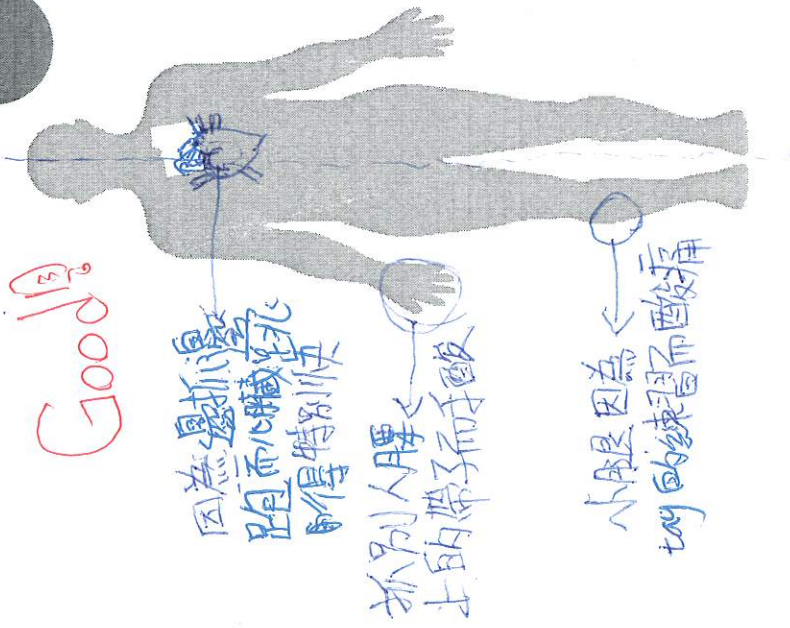 Good!
因為邊抓邊
跑而心臟跳
得特別快
抓別人腰
上的帶子而手酸
小腿因為
tay的練習而酸痛